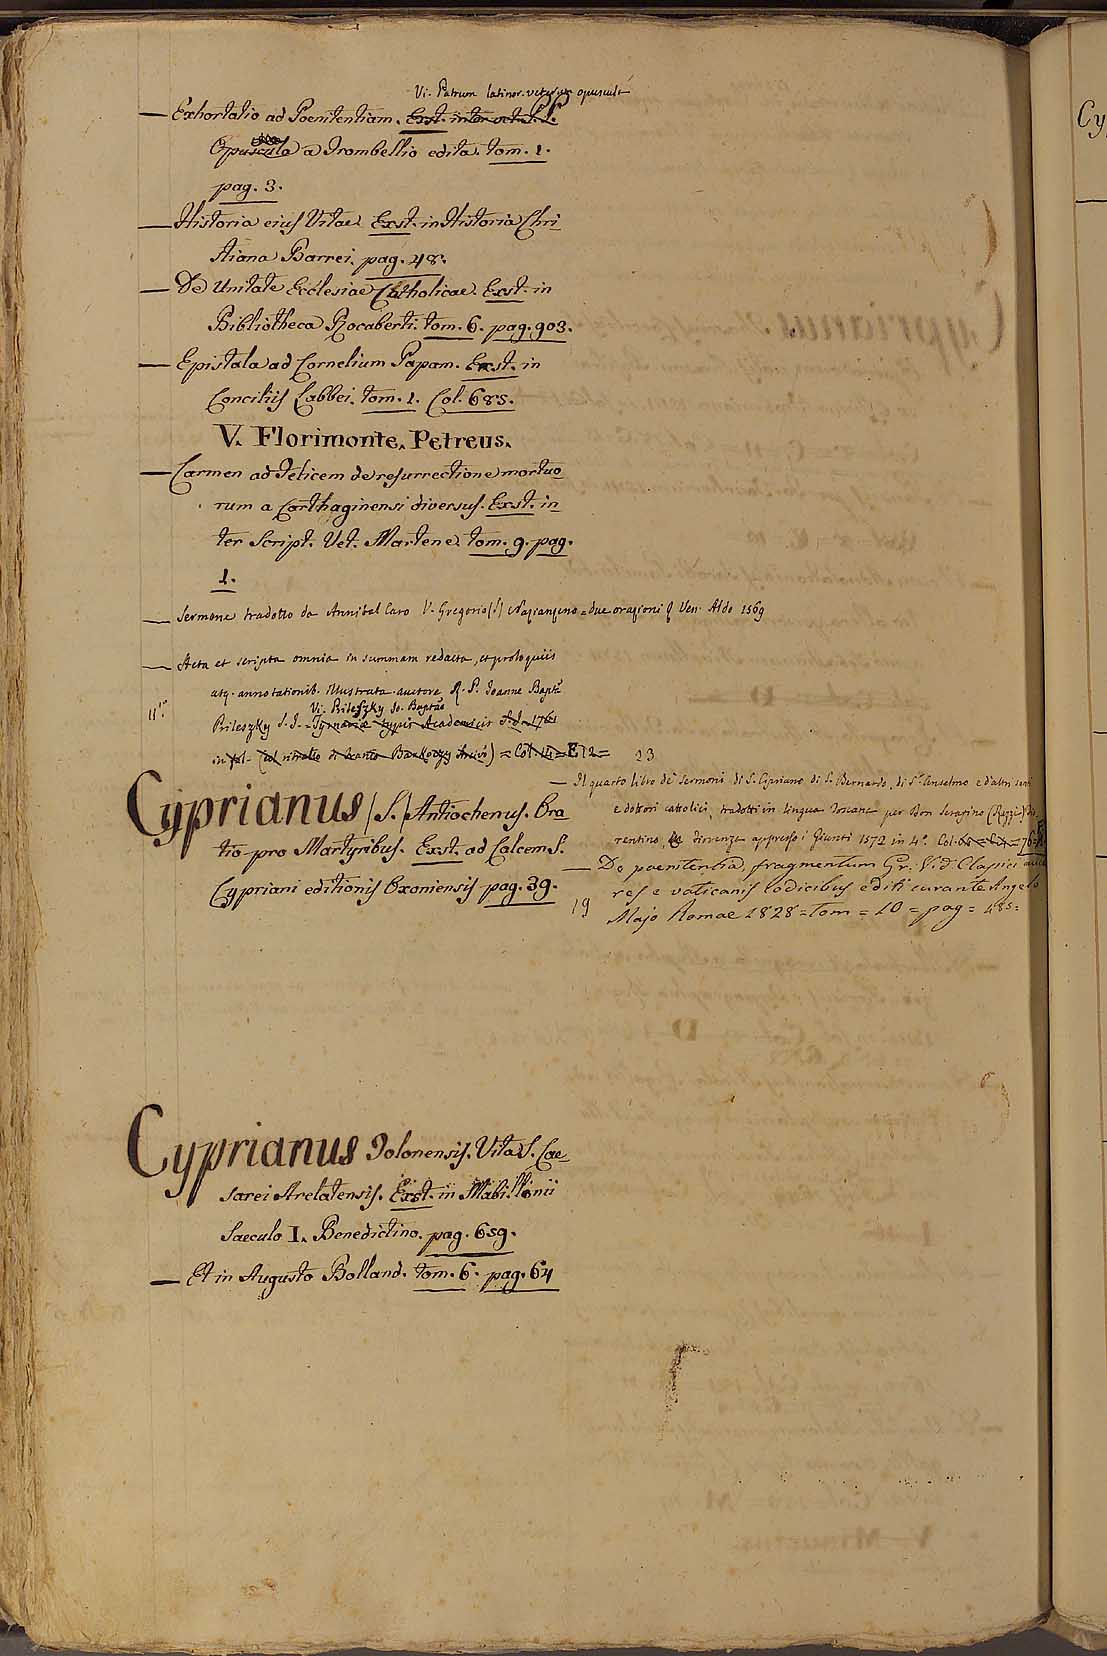 Vi. Patrum latinor. veterum opuscula
— Exhortatio ad Poenitentiam. Exst. inter vet. P.P.
Opuscula a Trombellio edita. tom. 1.
pag. 3.
— Historia eius Vitae. Exst. in Historia Chri
stiana Barrei. pag. 48.
— De Unitate Ecclesiae Catholicae. Exst. in
Bibliotheca Rocaberti. tom. 6. pag. 903.
— Epistola ad Cornelium Papam. Exst. in
Conciliis Labbei. tom. 1. Col. 685.
V. Florimonte. Petreus.
— Carmen ad Felicem de resurrectione mortuo
rum a Carthaginensi diversus. Exst. in
ter Script. Vet. Martene. tom. 9. pag.
1.
— Sermone tradotto da Annibal Caro V. Gregorio (S.) Nazianzeno = due orazioni Ven. Aldo 1569
— Acta et scripta omnia in summam redacta, et proloquiis
atq. annotationib. illustrata auctore R. P. Joanne Bapta
Vi. Prileszky Jo. Baptã
Prileszky S.J. Tyrnaviae typis Academicis A.d. 1761
in fol. = E 12 =
Cyprianus (S.) Antiochenus. Ora
tio pro Martyribus. Exst. ad Calcem S.
Cypriani editionis Oxoniensis pag. 39.
23
— Il quarto libro de' Sermoni di S. Cipriano di S. Bernardo, di St Anselmo e d'altri santi
e dottori cattolici, tradotti in lingua Toscana per Don Serafino (Razzi) Fio
rentino, Firenze appresso i Giunti 1572 in 4.º Col.
— De poenitentia, fragmentum Gr. Vid. Classici aucto
res e vaticanis codicibus editi curante Angelo
19 Majo Romae 1828 = Tom = 10 = pag = 485 =
Cyprianus Tolonensis. Vita S. Cae
sarei Arelatensis. Exst. in Mabillonii
Saeculo I. Benedictino. pag. 659.
— Et in Augusto Bolland. tom. 6. pag. 64
Cy